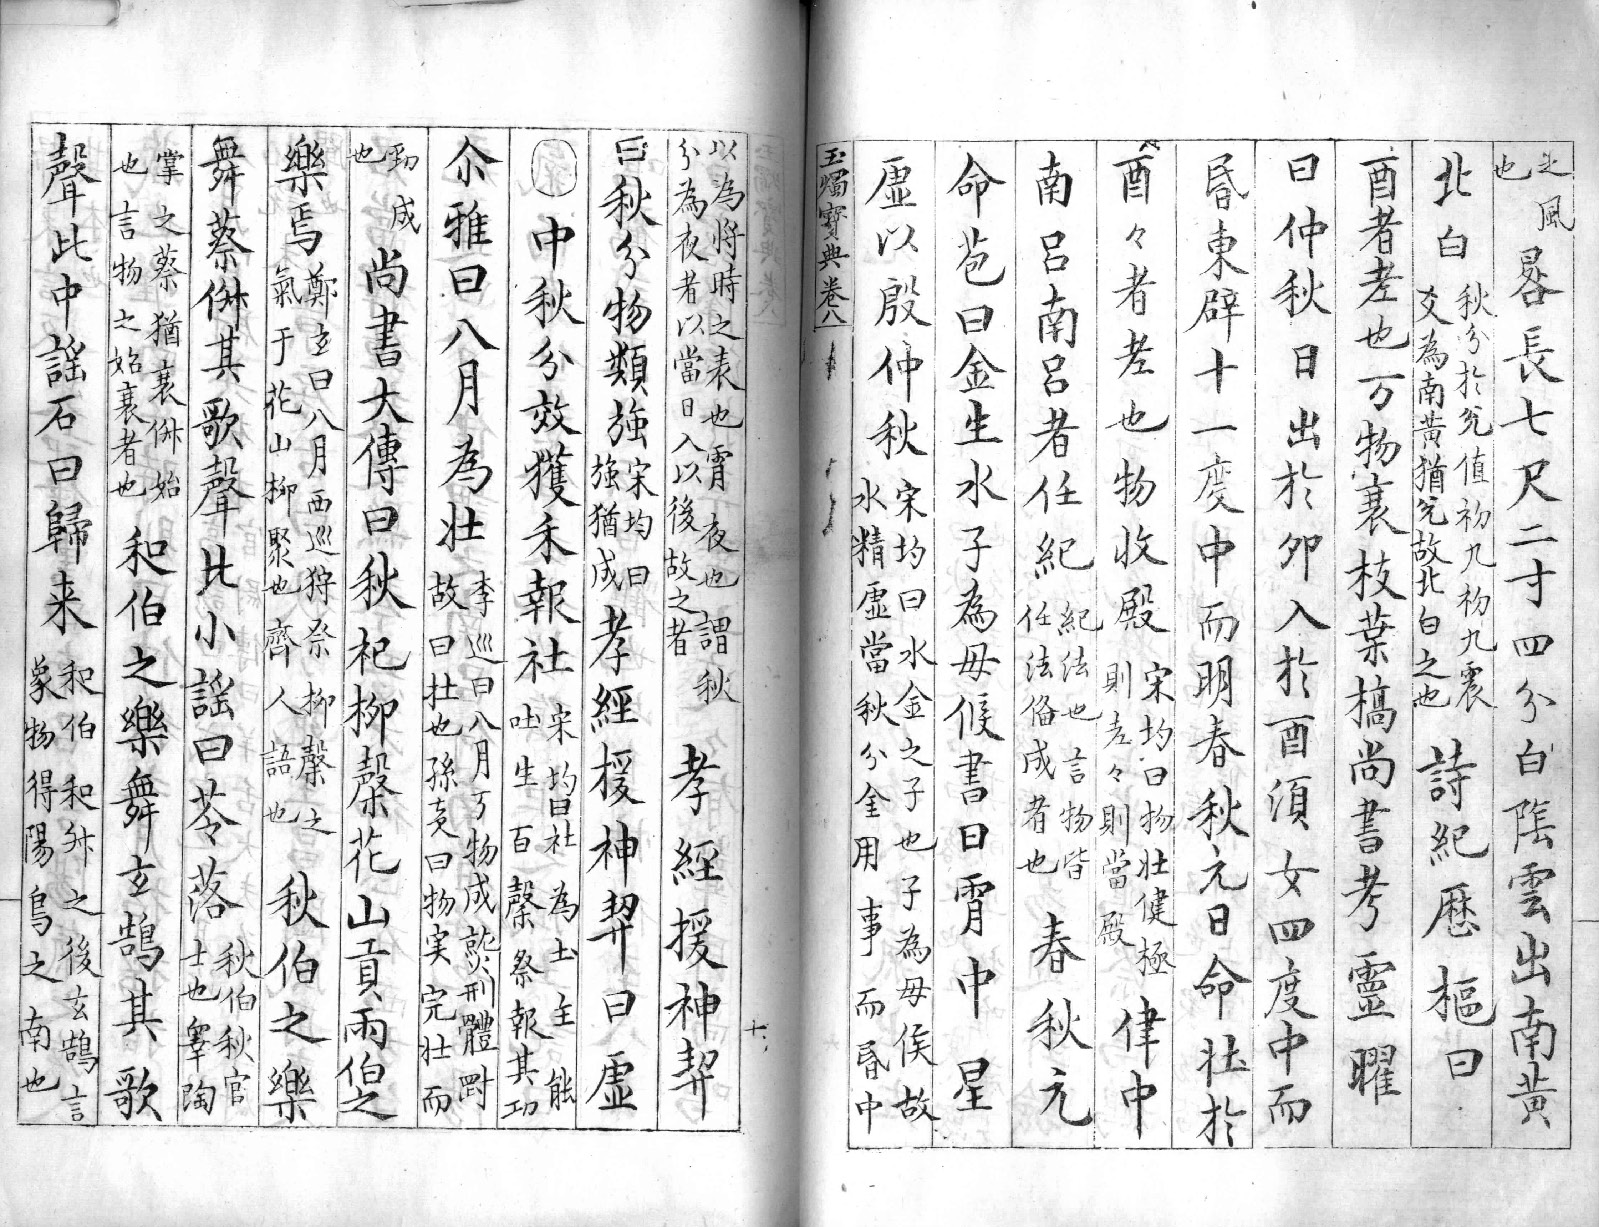 之風也晷長七尺二寸四分白陰雲出南黃
北白秋分於兊值初九初九震爻為南黃猶兊故北白之也詩紀歷樞曰
酉者老也万物衰枝葉槁尚書考靈曜
曰仲秋日出於卯入於酉須女四度中而
昏東辟十一度中而明春秋元日命壯於
酉々者老也物收殿宋均曰物壯健極則老々則當殿律中
南呂南呂者任紀紀法也言物皆任法俻成者也春秋元
命苞曰金生水子為母候書曰宵中星
虛以殷仲秋宋均曰水金之子也子為母侯故水精虛當秋分金用事而昏中
玉燭寶典卷八
十
以為將時之表也宵夜也謂秋分為夜者以當日入以後故之者孝經援神契
曰秋分物類強宋均曰強猶成孝經援神契曰虛
中秋分效獲禾報社宋均曰社為土主能吐生百穀祭報其功
尒雅曰八月為壮李巡曰八月万物成熟刑體罰故曰壮也孫炎曰物実完壮而
勁成也尚書大傳曰秋祀柳穀花山貢兩伯之
樂焉鄭玄曰八月西巡狩祭柳穀之氣于花山柳聚也齊人語也秋伯之樂
舞蔡俶其歌聲比小謡曰苓落秋伯秋官士也睾陶
掌之蔡猶衰俶始也言物之始衰者也和伯之樂舞玄鵠其歌
聲比中謡石曰歸来和伯和叔之後玄鵠言象物得陽鳥之南也